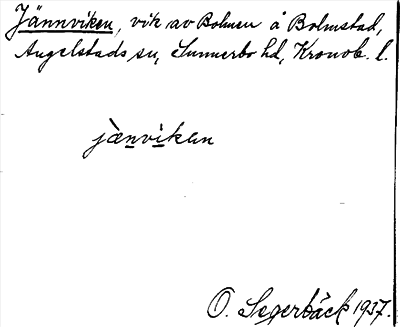 Jännviken, vik av Bolmen å Bolmstad,
Angelstads sn, Sunnerbo hd, Kronob. l.
jànviken
O. Segerbäck 1937.